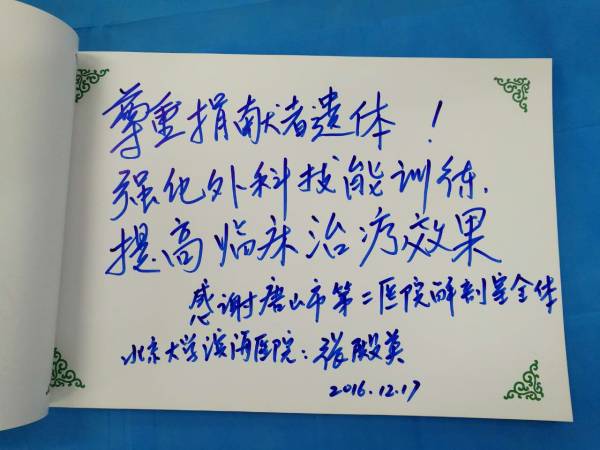 尊重捐献者遗体！
强化外科技能训练，
提高临床治疗效果
感谢唐山市第二医院解剖室全体
北京大学滨海医院：张殿英
2016.12.17